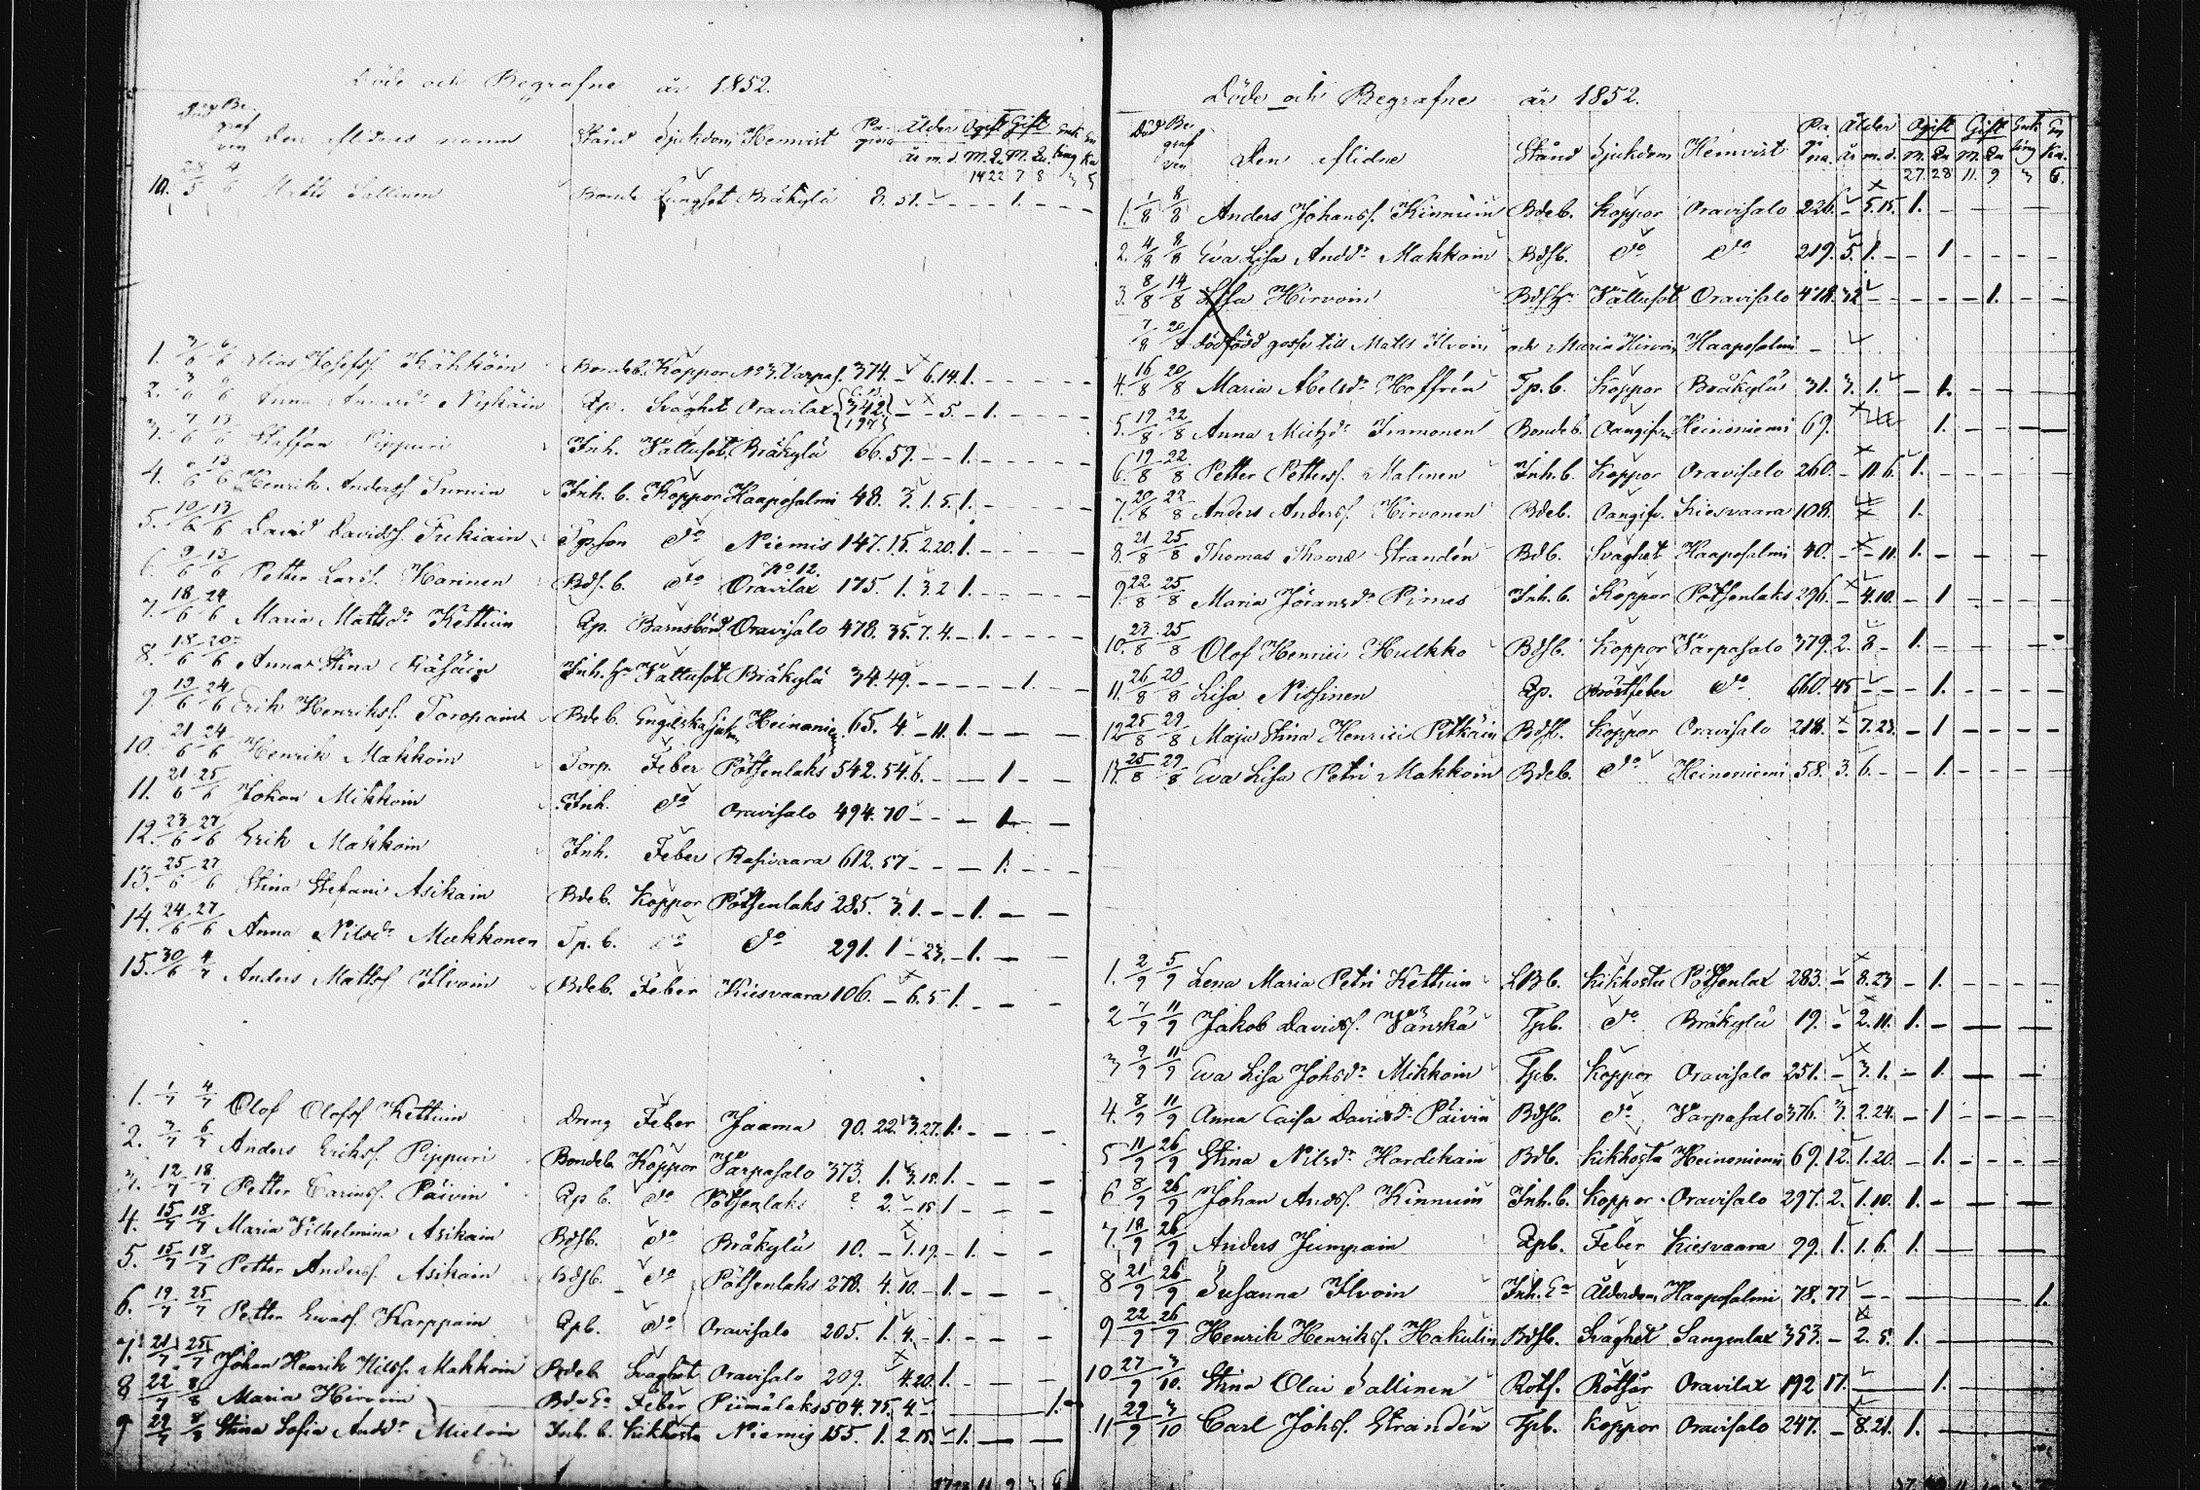 Döde och Begrafne år 1852.
Död Be-graf ven Den aflidnes namn Stånd Sjukdom Hemvist Pagina Ålder Ogift Gift Enkling Enka
år m. d. M. Q. M. Qu.
14 22 7 8 3 5
10. 28/5 4/6 Matts Sallinen Bonde Lungsot Bräkylä 8. 51. - - - - 1. - - -
1. 3/6 6/6 Elias Josefss. Kähköin Bondeb. Koppor No 3. Varpas. 374. - 6.14. 1. - - - -
2. 3/6 6/6 Anna Nykäin Qp. Svaghet Oravilax 342. 197 - - 5. - 1. - - - -
3. 7/6 13/6 Staffan Pippuri Inh. Vattusot Bräkylä 66. 59. - - 1. - - - -
4. 13/6 Henrik Anderss. Turuin Inh. b. Koppor Haaposalmi 48. 3. 1. 5. 1. - - - -
5. 10/6 13/6 David Davidss. Tukiain Tp. son do Niemis 147. 15. 2. 20. 1. - - - -
6. 9/6 13/6 Petter Larss. Karinen Bdf. b. do No 12. Oravilax 175. 1. 3. 2. 1. - - - -
7. 18/6 24/6 Maria Mattsdr Kettuin Qp. Barnsbörd Oravisalo 478. 35. 7. 4. - 1. - - - -
8. 18/6 20/6 Anna Stina Räsäin Inh. hu Vattusot Bräkylä 34. 49. - - - - 1. - -
9. 19/6 24/6 Erik Henrikss. Toropain Bdeb. Engelska sjukan Heinoniemi 65. 4. - 11. 1. - - -
10. 21/6 24/6 Henrik Makkoin Torp. Feber Pötsenlaks 542. 54. 6. - - 1. - -
11. 21/6 25/6 Johan Mikkoin Inh. do Oravisalo 494. 70 - - - 1. - -
12. 23/6 27/6 Erik Makkoin Inh. Feber Rasivaara 612. 57 - - - 1. - - -
13. 25/6 27/6 Stina Stefani Asikain Bdeb. Koppor Pötsenlaks 285. 3. 1. - - 1. - -
14. 24/6 27/6 Anna Nilsdr Mukkonen Tp. b. do do 291. 1 - 23. - 1. - -
15. 30/6 4/7 Anders Mattss. Ilvoin Bdeb. Feber Kiesvaara 106. - 6. 5. 1. - - -
1. 1/7 4/7 Olof Olofss. Kettuin Dreng Feber Jaama 90. 22. 3. 27. 1. - - -
2. 3/7 6/7 Anders Erikss. Pippuri Bondeb. Koppor Varpasalo 373. 1. 3. 18. 1. - - -
3. 12/7 18/7 Petter Carinss. Päivin Qp b. do Pötsenlaks ? 2. - 15 1 - - -
4. 15/7 18/7 Maria Vilhelmina Asikain Bdsb. do Bräkylä 10. - 1. 19. - 1. - -
5. 15/7 18/7 Petter Anderss. Asikain Bdsb. do Pötsenlaks 278. 4. 10. - 1. - - -
6. 19/7 25/7 Petter Evass. Karppain Qpb. do Oravisalo 205. 1. 4. - 1. - - -
7. 21/7 25/7 Johan Henrik Nilss. Makkoin Bdeb. Svaghet Oravisalo 209. 4. 20. 1. - - -
8 22/7 8/8 Maria Hirvoin Bdes Ea Feber Piimälaks 504. 75. 4. - 1. -
9 29/7 8/8 Stina Sofia Andsdr Mieloin Inh. b. Kikhosta Niemis 155. 1. 2. 15. - 1. - -
Döde och Begrafne år 1852.
Död Be-graf ven Den Aflidne Stånd Sjukdom Hemvist Pagina. Ålder Ogift Gift Enkling Enka.
år m. d. M. Qu M. Qu
27. 28 11. 9 3 6.
1. 1/8 8/8 Anders Johanss. Kinnuin Bdeb. Koppor Oravisalo 226. - 5. 15. 1. - - - -
2. 4/8 8/8 Eva Lisa Andsdr Makkoin Bdsb. do do 219. 5. 1. - - 1 - - - -
3. 8/8 14/8 Lisa Hirvoin Bdshu Vattusot Oravisalo 478. 32 - - - - - 1. - -
7/8 20/8 dödfödd gosse till Matts Ilvoin och Maria Hirvoin Haaposalmi -
4. 16/8 20/8 Maria Abelsdr Hoffrén Tp. b. Koppor Bräkylä 31. 3. 1. - 1. - -
5. 19/8 22/8 Anna Michsdr Immonen Bondeb. Oangifven Heinoniemi 69. 1. - - -
6. 19/8 22/8 Petter Petterss. Malinen Inh. b. Koppor Oravisalo 260. - 11. 6. 1. - - - -
7. 20/8 22/8 Anders Anderss. Hirvonen Bdeb. Oangifv. Kiesvaara 108. 1.
8. 21/8 25/8 Thomas Thomæ Strandén Bdb. Svaghet Haaposalmi 40. - - 11. 1. - - -
9. 22/8 25/8 Maria Jöransdr Pirnes Inh. b. Koppor Pötsenlaks 296. - 4. 10. - 1 - - - -
10. 23/8 25/8 Olof Henrici Hulkko Bdsb. Koppor Varpasalo 379. 2. 8 - 1. - - -
11. 26/8 28/8 Lisa Nissinen Qp. Bröstfeber do 660. 45 - - - 1. - - - -
12. 25/8 29/8 Maja Stina Henrici Pitkäin Bdsb. Koppor Oravisalo 218. - 7. 23. - 1 - - - -
13. 25/8 29/8 Eva Lisa Petri Makkoin Bdeb. do Heinoniemi 58. 3. 6. - - 1. - - - -
1. 2/9 5/9 Lena Maria Petri Kettuin LBb. Kikhosta Pötsenlax 283. - 8. 23 - 1. - - - -
2 7/9 11/9 Jakob Davidss. Vänskä Tpb. do Bräkylä 19. - 2. 11. 1. - - - -
3 9/9 11/9 Eva Lisa Johsdr Mikkoin Tpb. Koppor Oravisalo 251. - 3. 1. - 1. - - -
4. 8/9 11/9 Anna Caisa Davidsdr Päivin Bdsb. do Varpasalo 376. 3. 2. 24. - 1 - - - -
5 11/9 26/9 Stina Nilsdr Hardikain Bdb. Kikhosta Heinoniemi 69. 12. 1. 20. - 1. - - - -
6 8/9 26/9 Johan Andss. Kinnuin Inh. b. Koppor Oravisalo 297. 2. 1. 10. 1. - - -
7. 18/9 26/9 Anders Jumpain Qpb. Feber Kiesvaara 99. 1. 1. 6. 1. - - -
8 21/9 26/9 Susanna Ilvoin Inh. Ea Ålderdom Haaposalmi 78. 77 - - 1.
9 22/9 26/9 Henrik Henrikss. Hakulin Bdsb. Svaghet Sangenlax 353. - 2. 5. 1. -
10 27/9 3/10. Stina Olai Sallinen Rots. Rötsår Oravilax 192 17. - 1. - -
11 29/9 3/10 Carl Johss. Strandén Tpb. Koppor Oravisalo 247. - 8. 21. 1. -